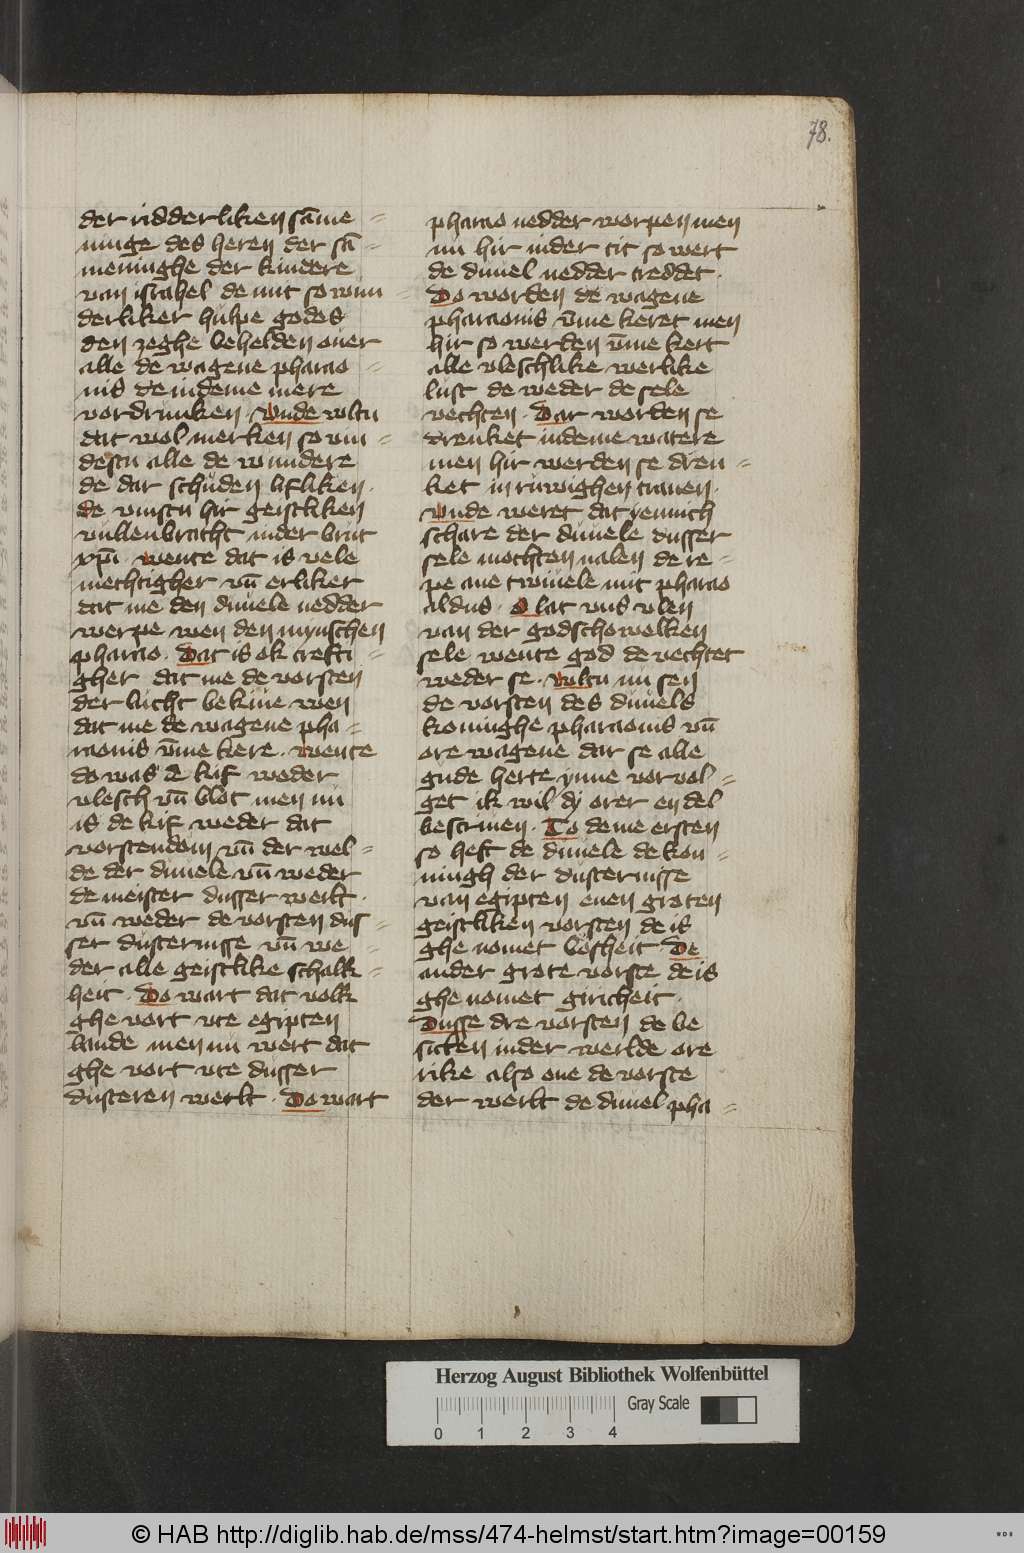 78.
der ridderliken sāme=
ninge des heren der sā=
meninghe der kindere
van israhel de mit so wun=
derliker hulpe godes
den zeghe behelden ouer
alle de wagene pharao=
nis de indeme mere
vordrunken · Vnde wltu
dat wol merken so vin=
destu alle de wundere
de dar schuden lifliken ·
de vinstu hir geistliken
vullenbracht inder brut
xp̄i · wente dat is vele
mechtigher vn̄ erliker
dat me den duuele nedder
werpe wen den mynschen
pharao · Dat is ok crefti=
gher dat me de vorsten
der lucht bekiue wen
dat me de wagene pha=
raonis v̄me kere · wente
do was de kif weder
vlesch vn̄ blot men nu
is de kif weder dat
vorstendom vn̄ der wel=
de der duuele vn̄ weder
de meister dusser werlt ·
vn̄ weder de vorsten dus=
ser dusternisse vn̄ we=
der alle geistlike schalk=
heit · Do wart dat volk
ghe vort vte egipten
lande men nu wert dat
ghe vort vte dusser
dusteren werlt · Do wart
pharao nedder worpen men
nu hir inder tit so wert
de duuel nedder treddet ·
Do worden de wagene
pharaonis v̄me keret men
hir so werden v̄me kert
alle vleschlike werlike
lust de weder de sele
vechten · Dar worden se
drenket indeme watere
men hir werden se dren=
ket in ruwighen tranen ·
Vnde weret dat yennich
schare der duuele dusser
sele mochten nalen de re=
pe ane twiuele mit pharao
aldus · O lat vns vlen
van der godschowelken
sele wente god de vechtet
weder se · wltu nu sen
de vorsten des duuels
koninghe pharaonis vn̄
ore wagene dar se alle
gude herte ynne vorvol=
get ik wil dy orer en del
bescriuen · To deme ersten
so heft de duuele de kon=
ningh der dusternisse
van egipten enen groten
geistliken vorsten de is
ghe nomet bosheit De
ander grote vorste de is
ghe nomet giricheit ·
Dusse dre vorsten de be
sitten inder werlde ore
rike also one de vorste
der werlt de duuel pha=
Herzog August Bibliothek Wolfenbüttel
Gray Scale
0 1 2 3 4
© HAB http://diglib.hab.de/mss/474-helmst/start.htm?image=00159